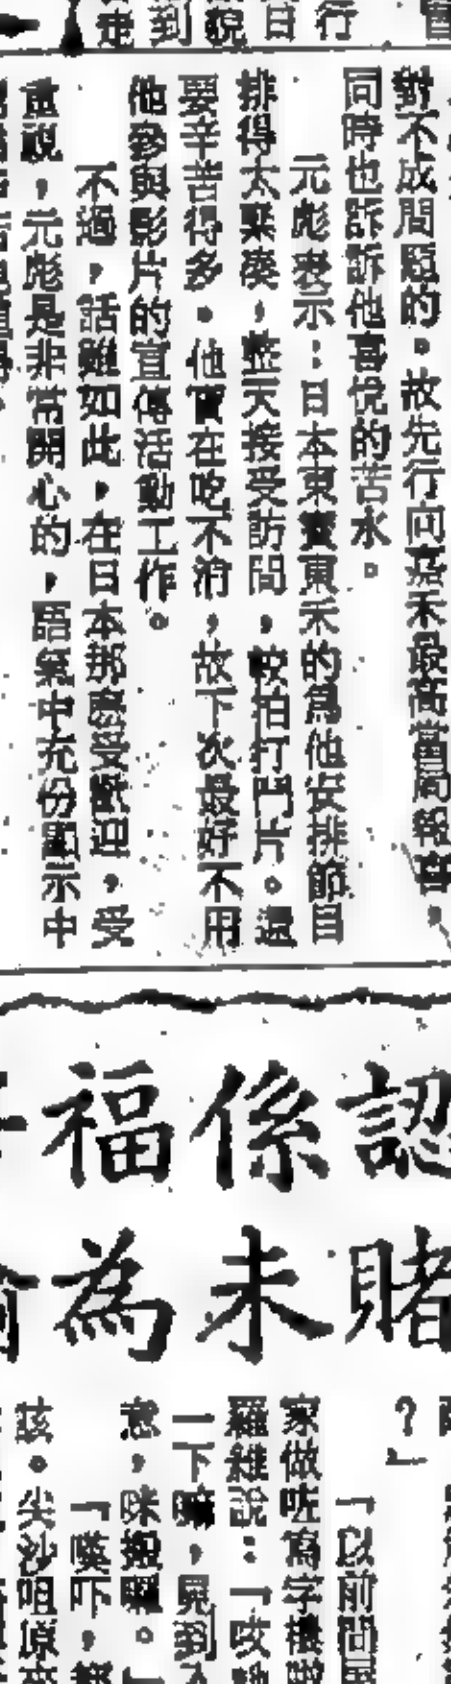 走到貌日行
對不成問題的。故先行向嘉禾最高當局報告，
同時也訴訴他喜悅的苦水。
元彪表示：日本東寶東禾的為他安排節目
排得太緊湊，整天接受訪問，較拍打鬥片。還
要辛苦得多。他實在吃不消，故下次最好不用
他參與影片的宣傳活動工作。
不過，話雖如此，在日本那麼受歡迎，受
重視，元彪是非常開心的，語氣中充份顯示中
認係福
賭未為
？」
「以前間屋
家做咗寫字樓
羅雜說：「哎
一下嘛，見到人
意，咪搬囉。」
「嘆吓，都
該。尖沙咀原來